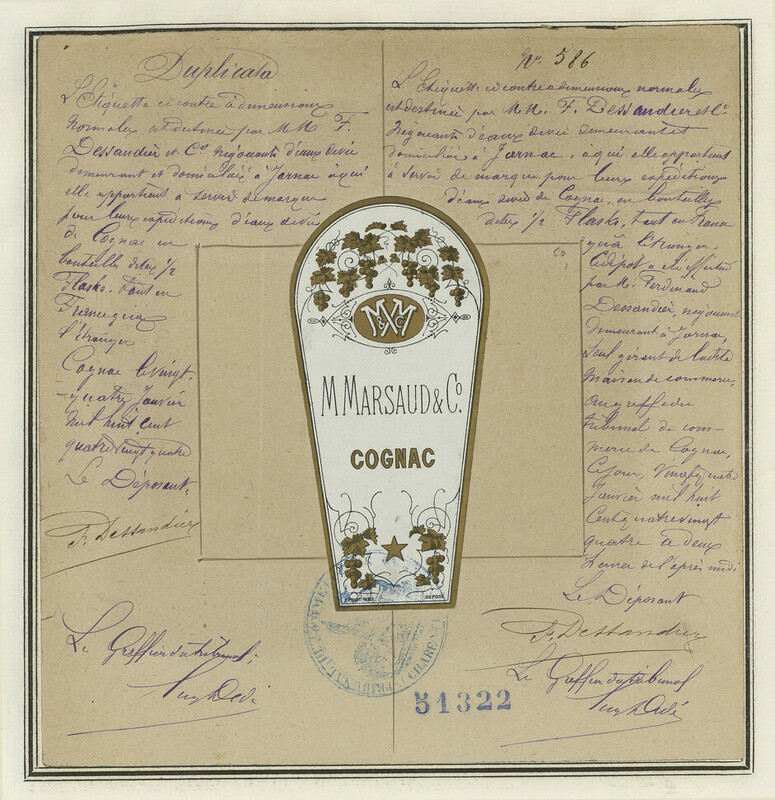 Duplicata
L'Etiquette ci contre à dimensions
normales est destinée par MM F.
Dessandier et Cie Négociants d'eaux de vie
demeurant et domiciliés à Jarnac à qui
elle appartient à servir de marque
pour leurs expéditions d'eaux de vie
de Cognac en
bouteilles et 1/2
Flasks, tant en
France qu'à
l'étranger
Cognac le vingt-
quatre Janvier
mil huit cent
quatre vingt quatre
Le Déposant.
F. Dessandier
Le Greffier du tribunal,
No. 586
L'Etiquette ci contre à dimensions normales
est destinée par MM. F. Dessandier et Cie
Négociants d'eaux de vie demeurant et
domiciliés à Jarnac, à qui elle appartient
à servir de marque pour leurs expéditions
d'eaux de vie de Cognac, en bouteilles
et 1/2 Flasks, tant en France
qu'à l'étranger.
Ce dépôt a été effectué
par M. Ferdinand
Dessandier, négociant
demeurant à Jarnac,
seul gérant de ladite
Maison de commerce,
au greffe du
tribunal de com-
merce de Cognac,
Ce jour, Vingt quatre
Janvier mil huit
Cent quatre vingt
quatre à deux
heures de l'après midi
Le Déposant
F. Dessandier
Le Greffier du tribunal
M & Co M
M. MARSAUD & Co.
COGNAC
DÉPOSÉ
TRIBUNAL DE COMMERCE
CHARENTE
51322